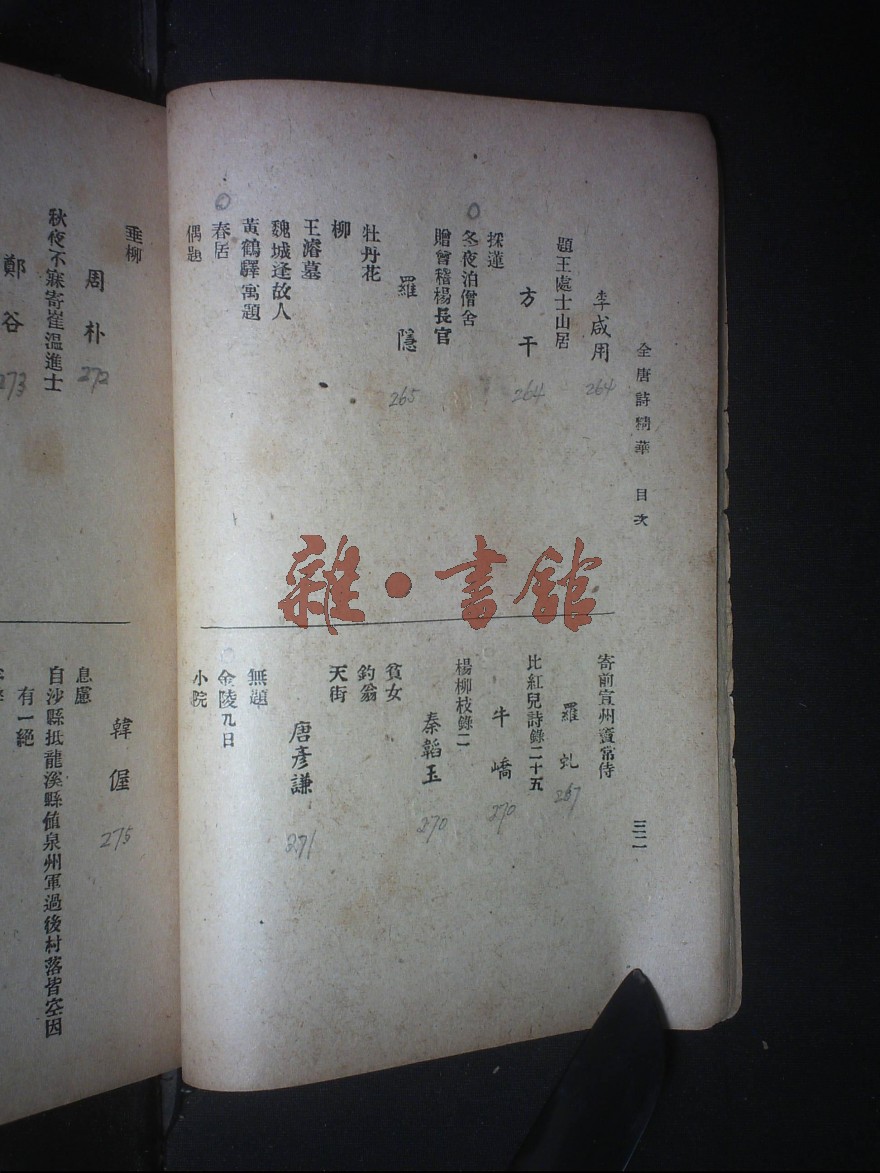 全唐詩精華 目次
三二
李咸用 264
題王處士山居
方干 264
採蓮
冬夜泊僧舍
贈會稽楊長官
羅隱 265
牡丹花
柳
王濬墓
魏城逢故人
黃鶴驛寓題
春居
偶題
寄前宣州竇常侍
羅虬 267
比紅兒詩錄二十五
牛嶠 270
楊柳枝錄二
秦韜玉 270
貧女
釣翁
天街
唐彥謙 271
無題
金陵九日
小院
垂柳
周朴 272
秋夜不寐寄崔溫進士
鄭谷 273
韓偓 275
息慮
自沙縣抵龍溪縣值泉州軍過後村落皆空因
有一絕
雜·書館